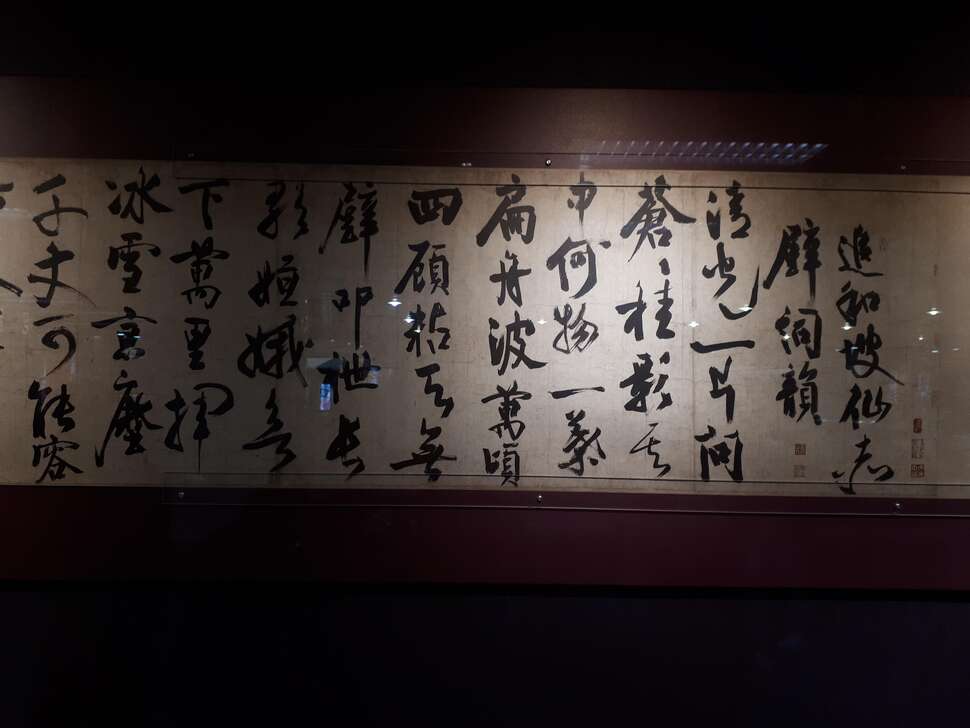 追和坡仙赤
壁詞韻
清光一片問
蒼〻桂影其
中何物一葉
扁舟波萬頃
四顧粘天無
壁叩枻長
歌姮娥欲
下萬里揮
冰雪京塵
千丈可能容